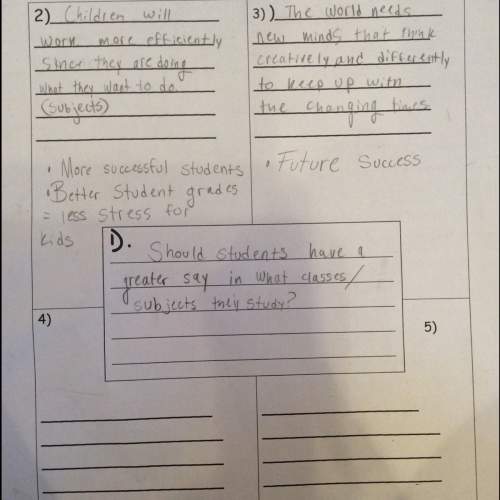 2) Children will
work more efficiently
since they are doing
what they want to do.
(subjects)
• More successful students
• Better Student grades
= less stress for
kids
3)) The world needs
new minds that think
creatively and differently
to keep up with
the changing times
• Future Success
1). Should students have a
greater say in what classes/
subjects they study?
4)
5)